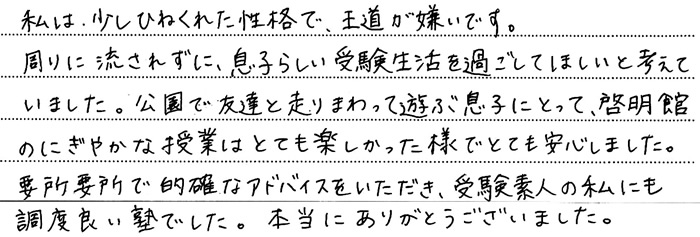 私は、少しひねくれた性格で、王道が嫌いです。
周りに流されずに、息子らしい受験生活を過ごしてほしいと考えて
いました。公園で友達と走りまわって遊ぶ息子にとって、啓明館
のにぎやかな授業はとても楽しかった様でとても安心しました。
要所要所で的確なアドバイスをいただき、受験素人の私にも
調度良い塾でした。本当にありがとうございました。